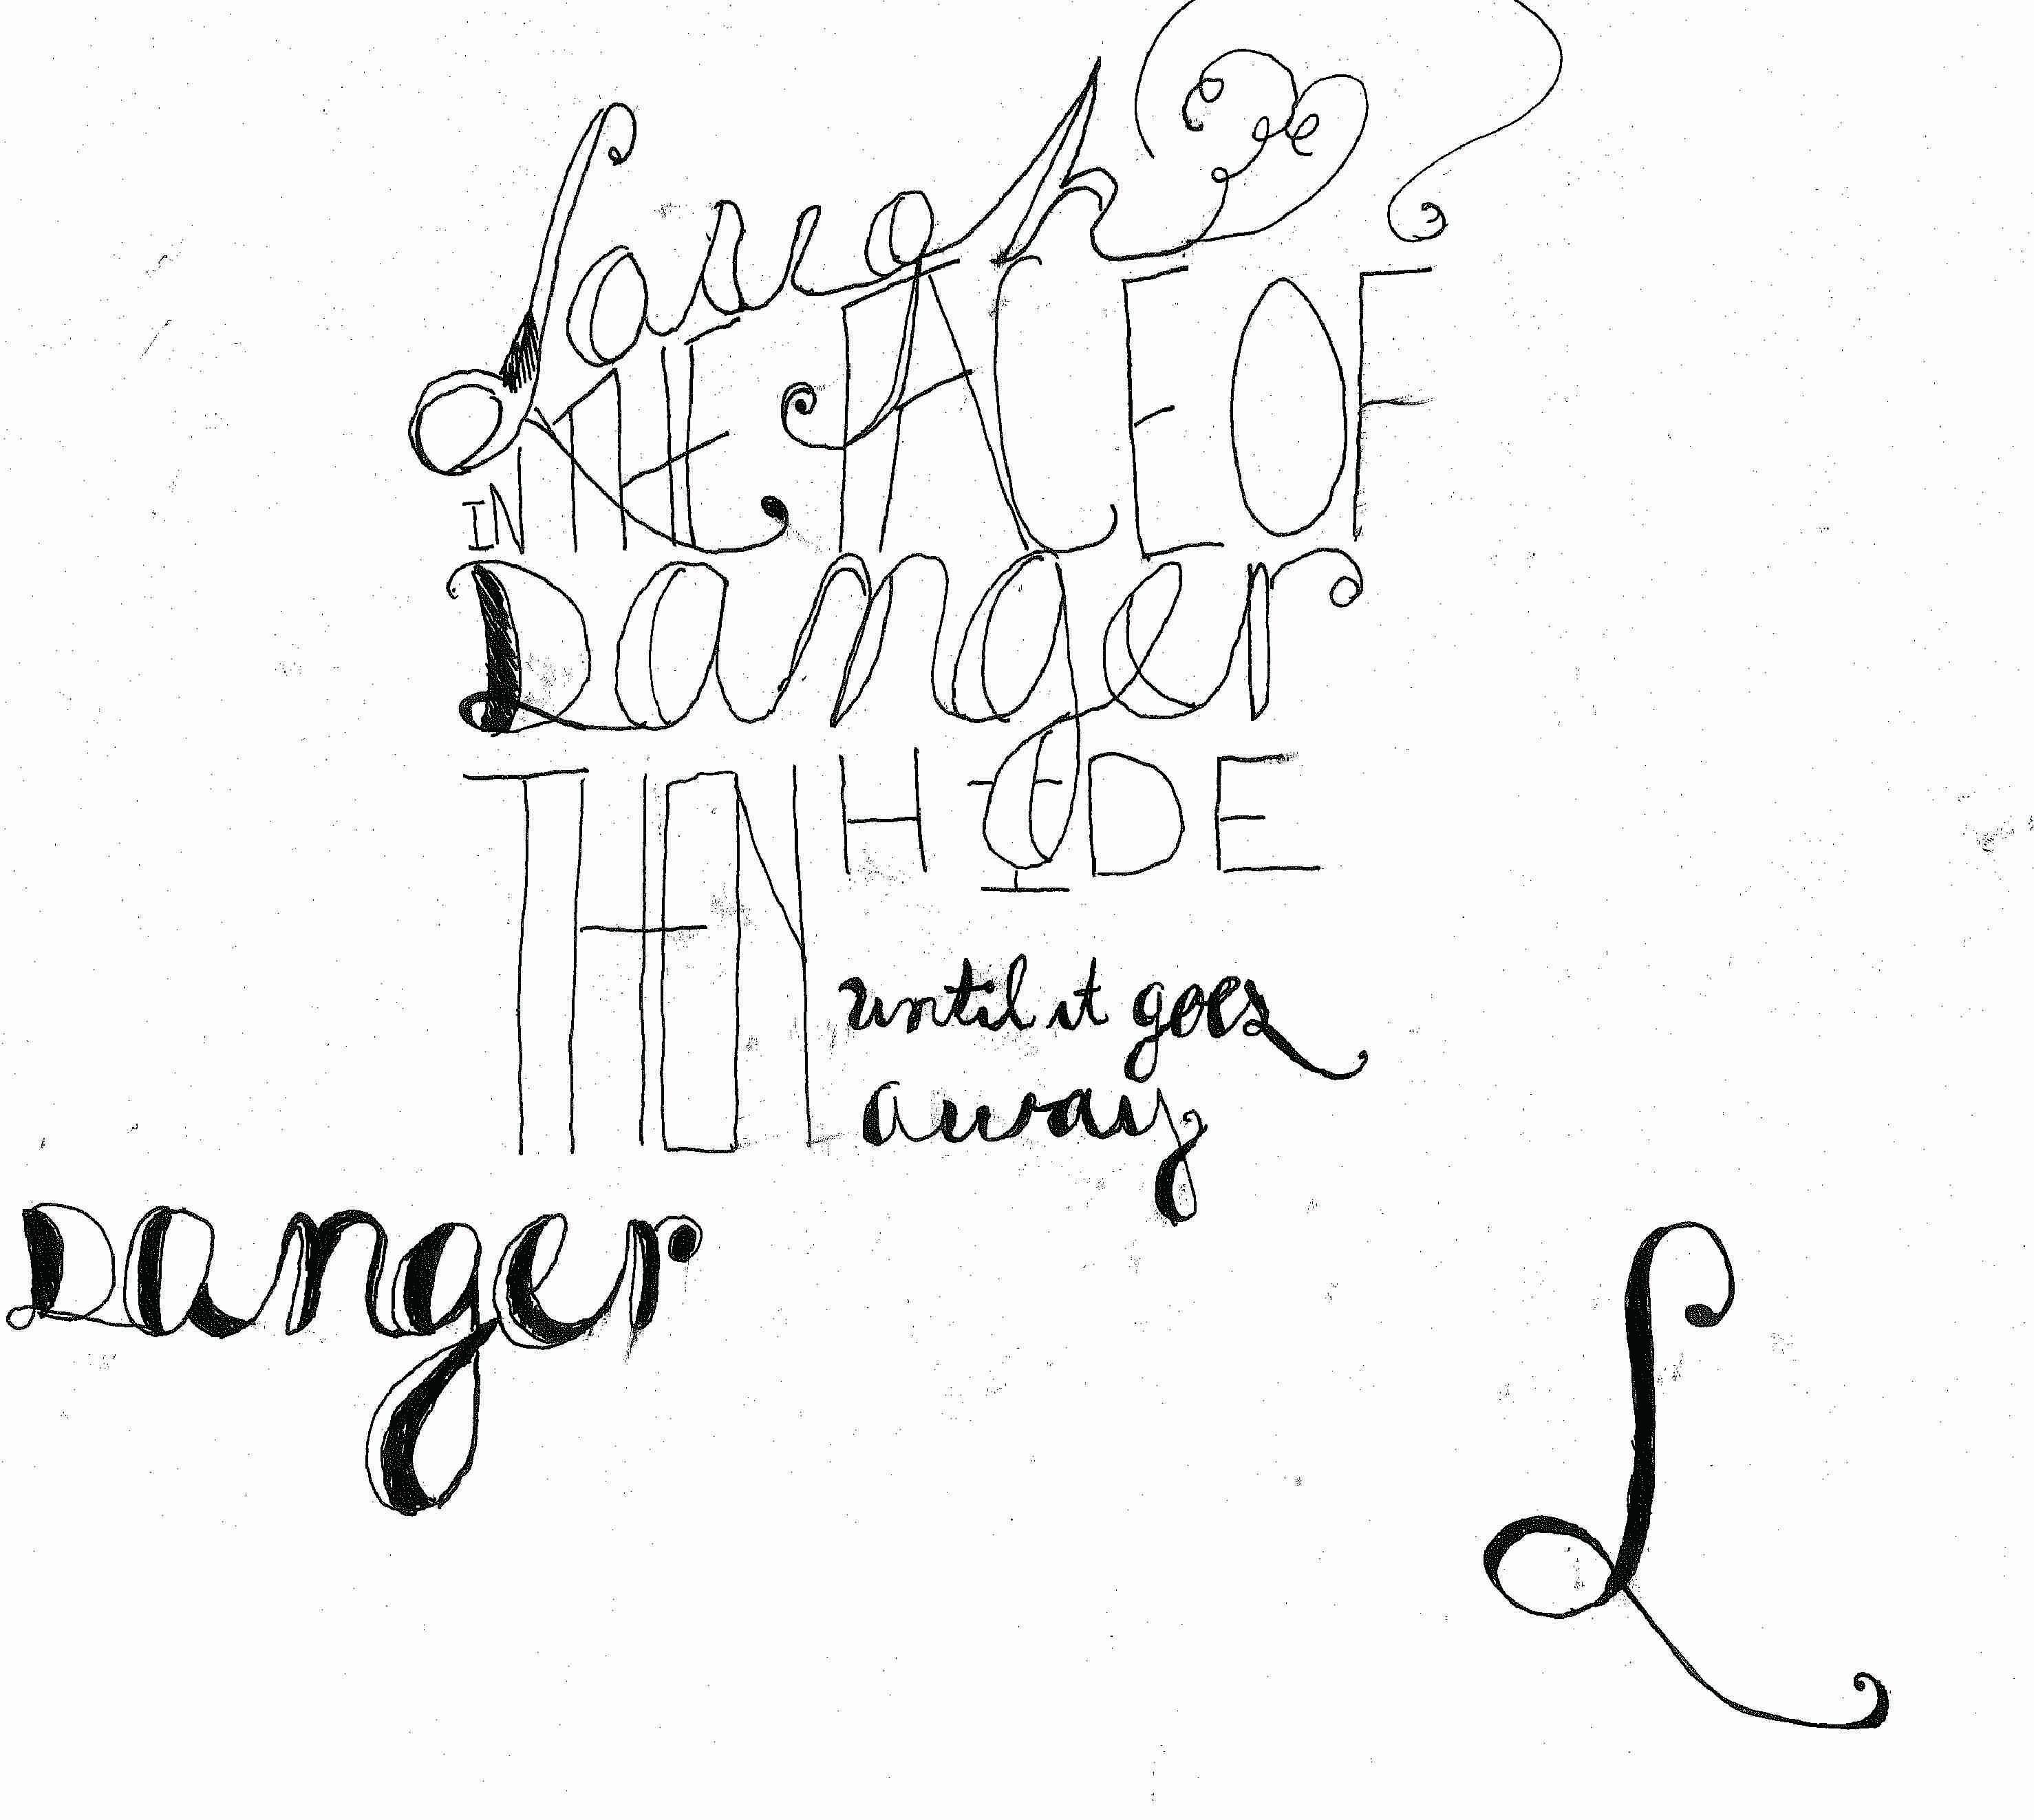 Laugh
IN THE FACE OF
Danger
THEN HIDE
until it goes
away
Danger
L